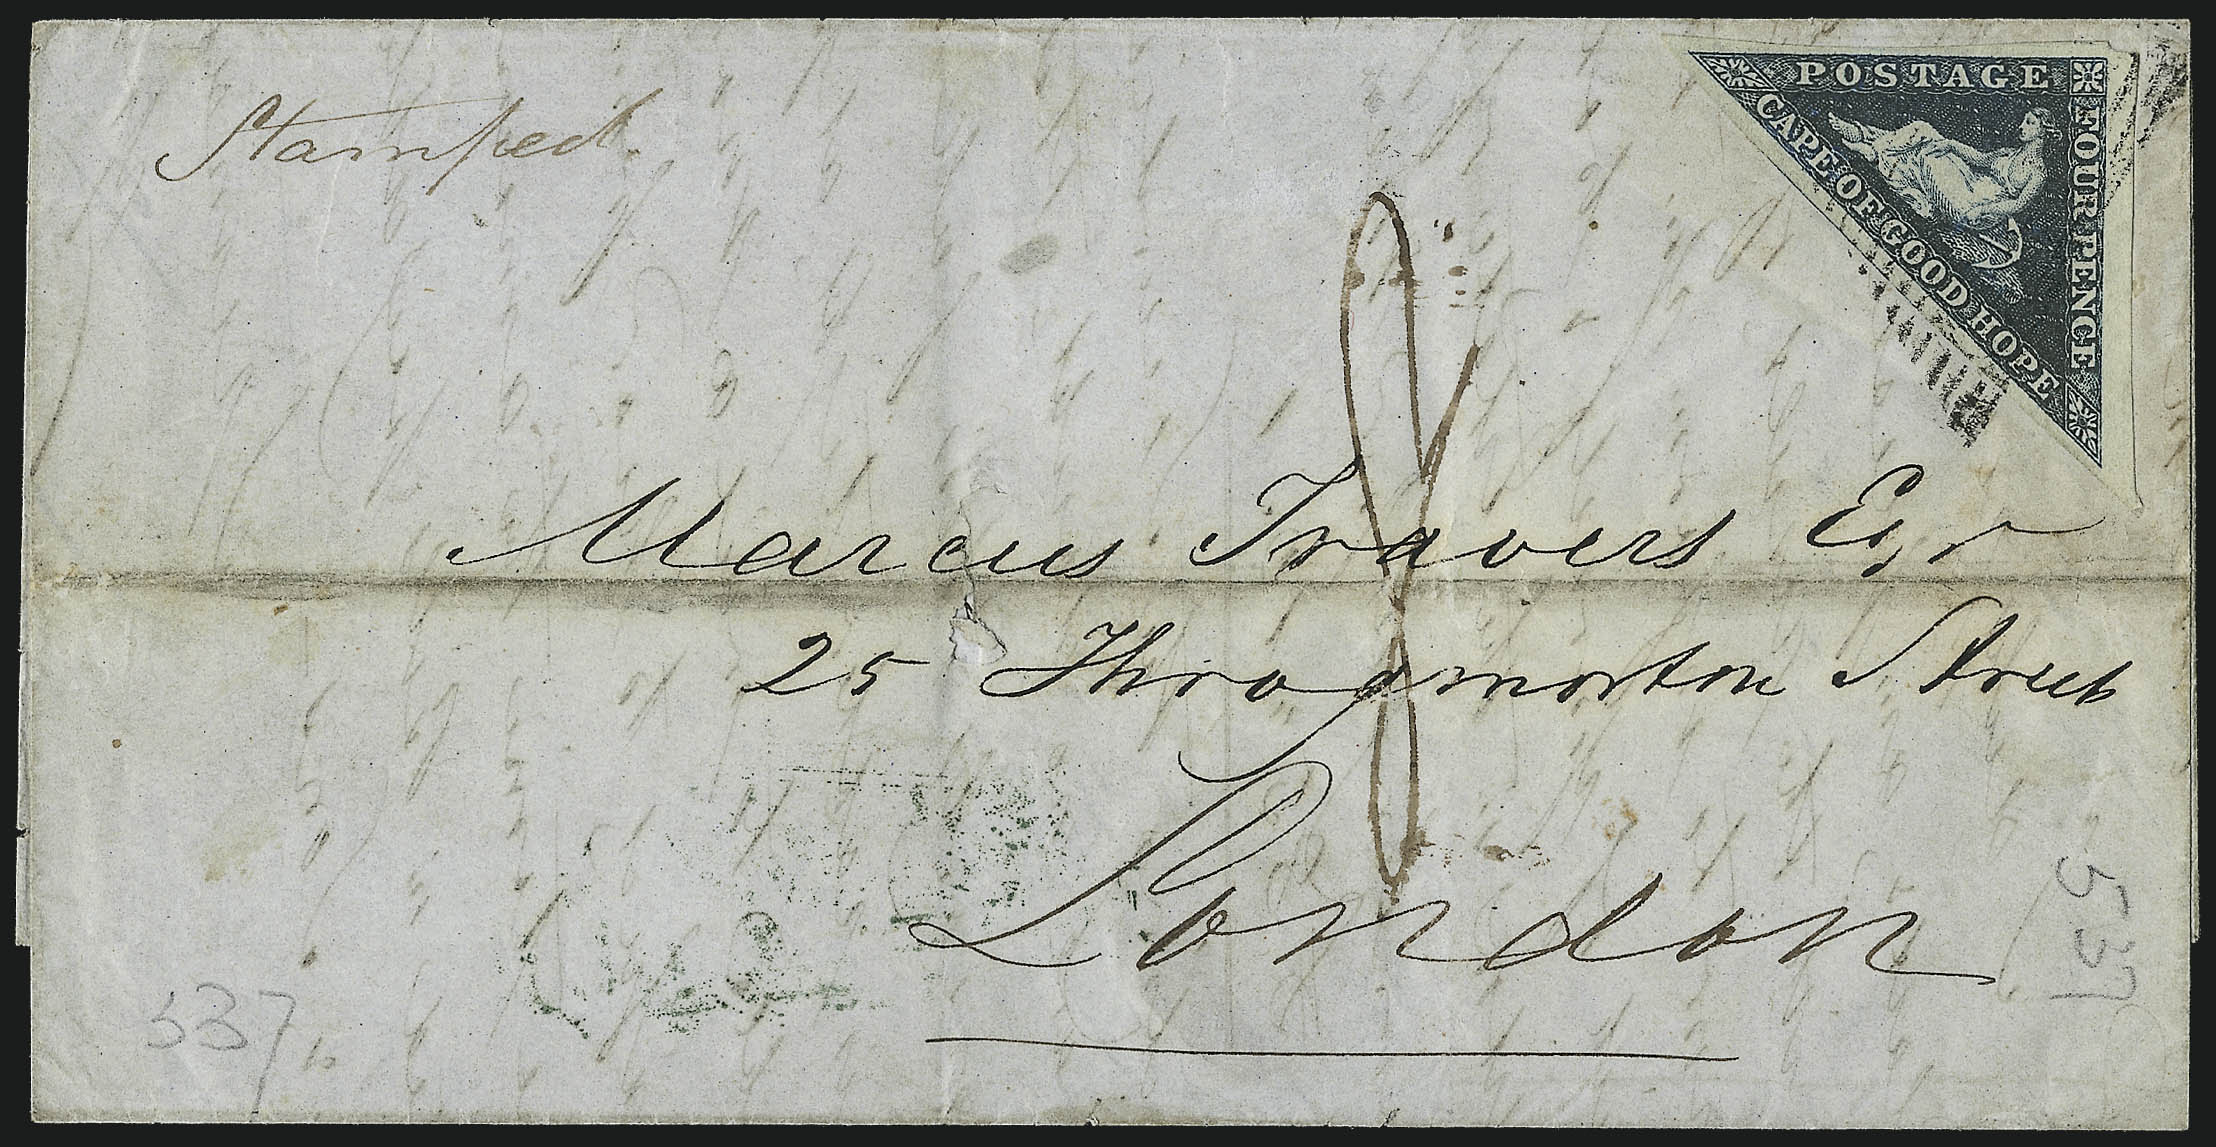 Stamped
POSTAGE
FOUR PENCE
CAPE OF GOOD HOPE
Marcus Travers Esqr
25 Throgmorton Street
London
537
537